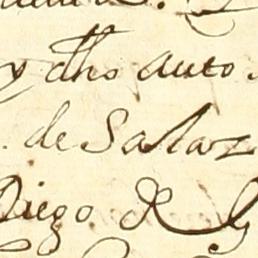 y dhos auto
de Salaz
Diego R